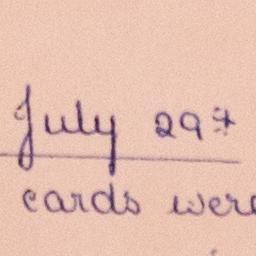 July 29th
cards were